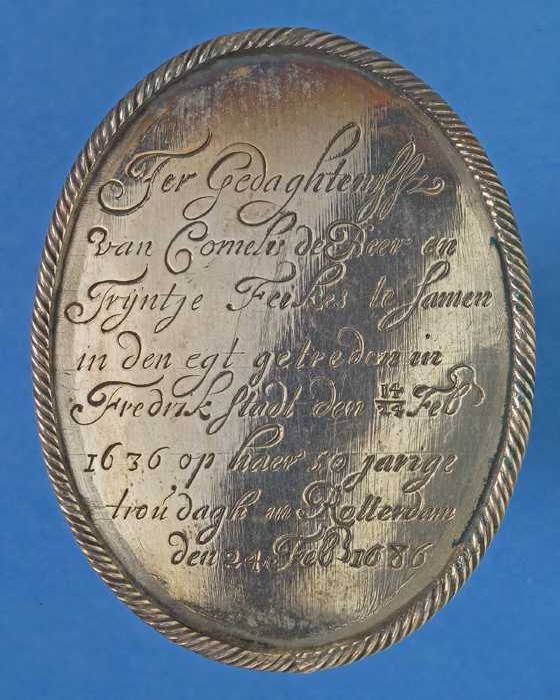 Ter Gedaghtenysse
van Cornelis de Reer en
Trÿntje Feikes te samen
in den egt getreden in
Fredrikstadt den 14/24 Feb
1636 op haer 50 jarige
trou dagh in Rotterdam
den 24 Feb 1686